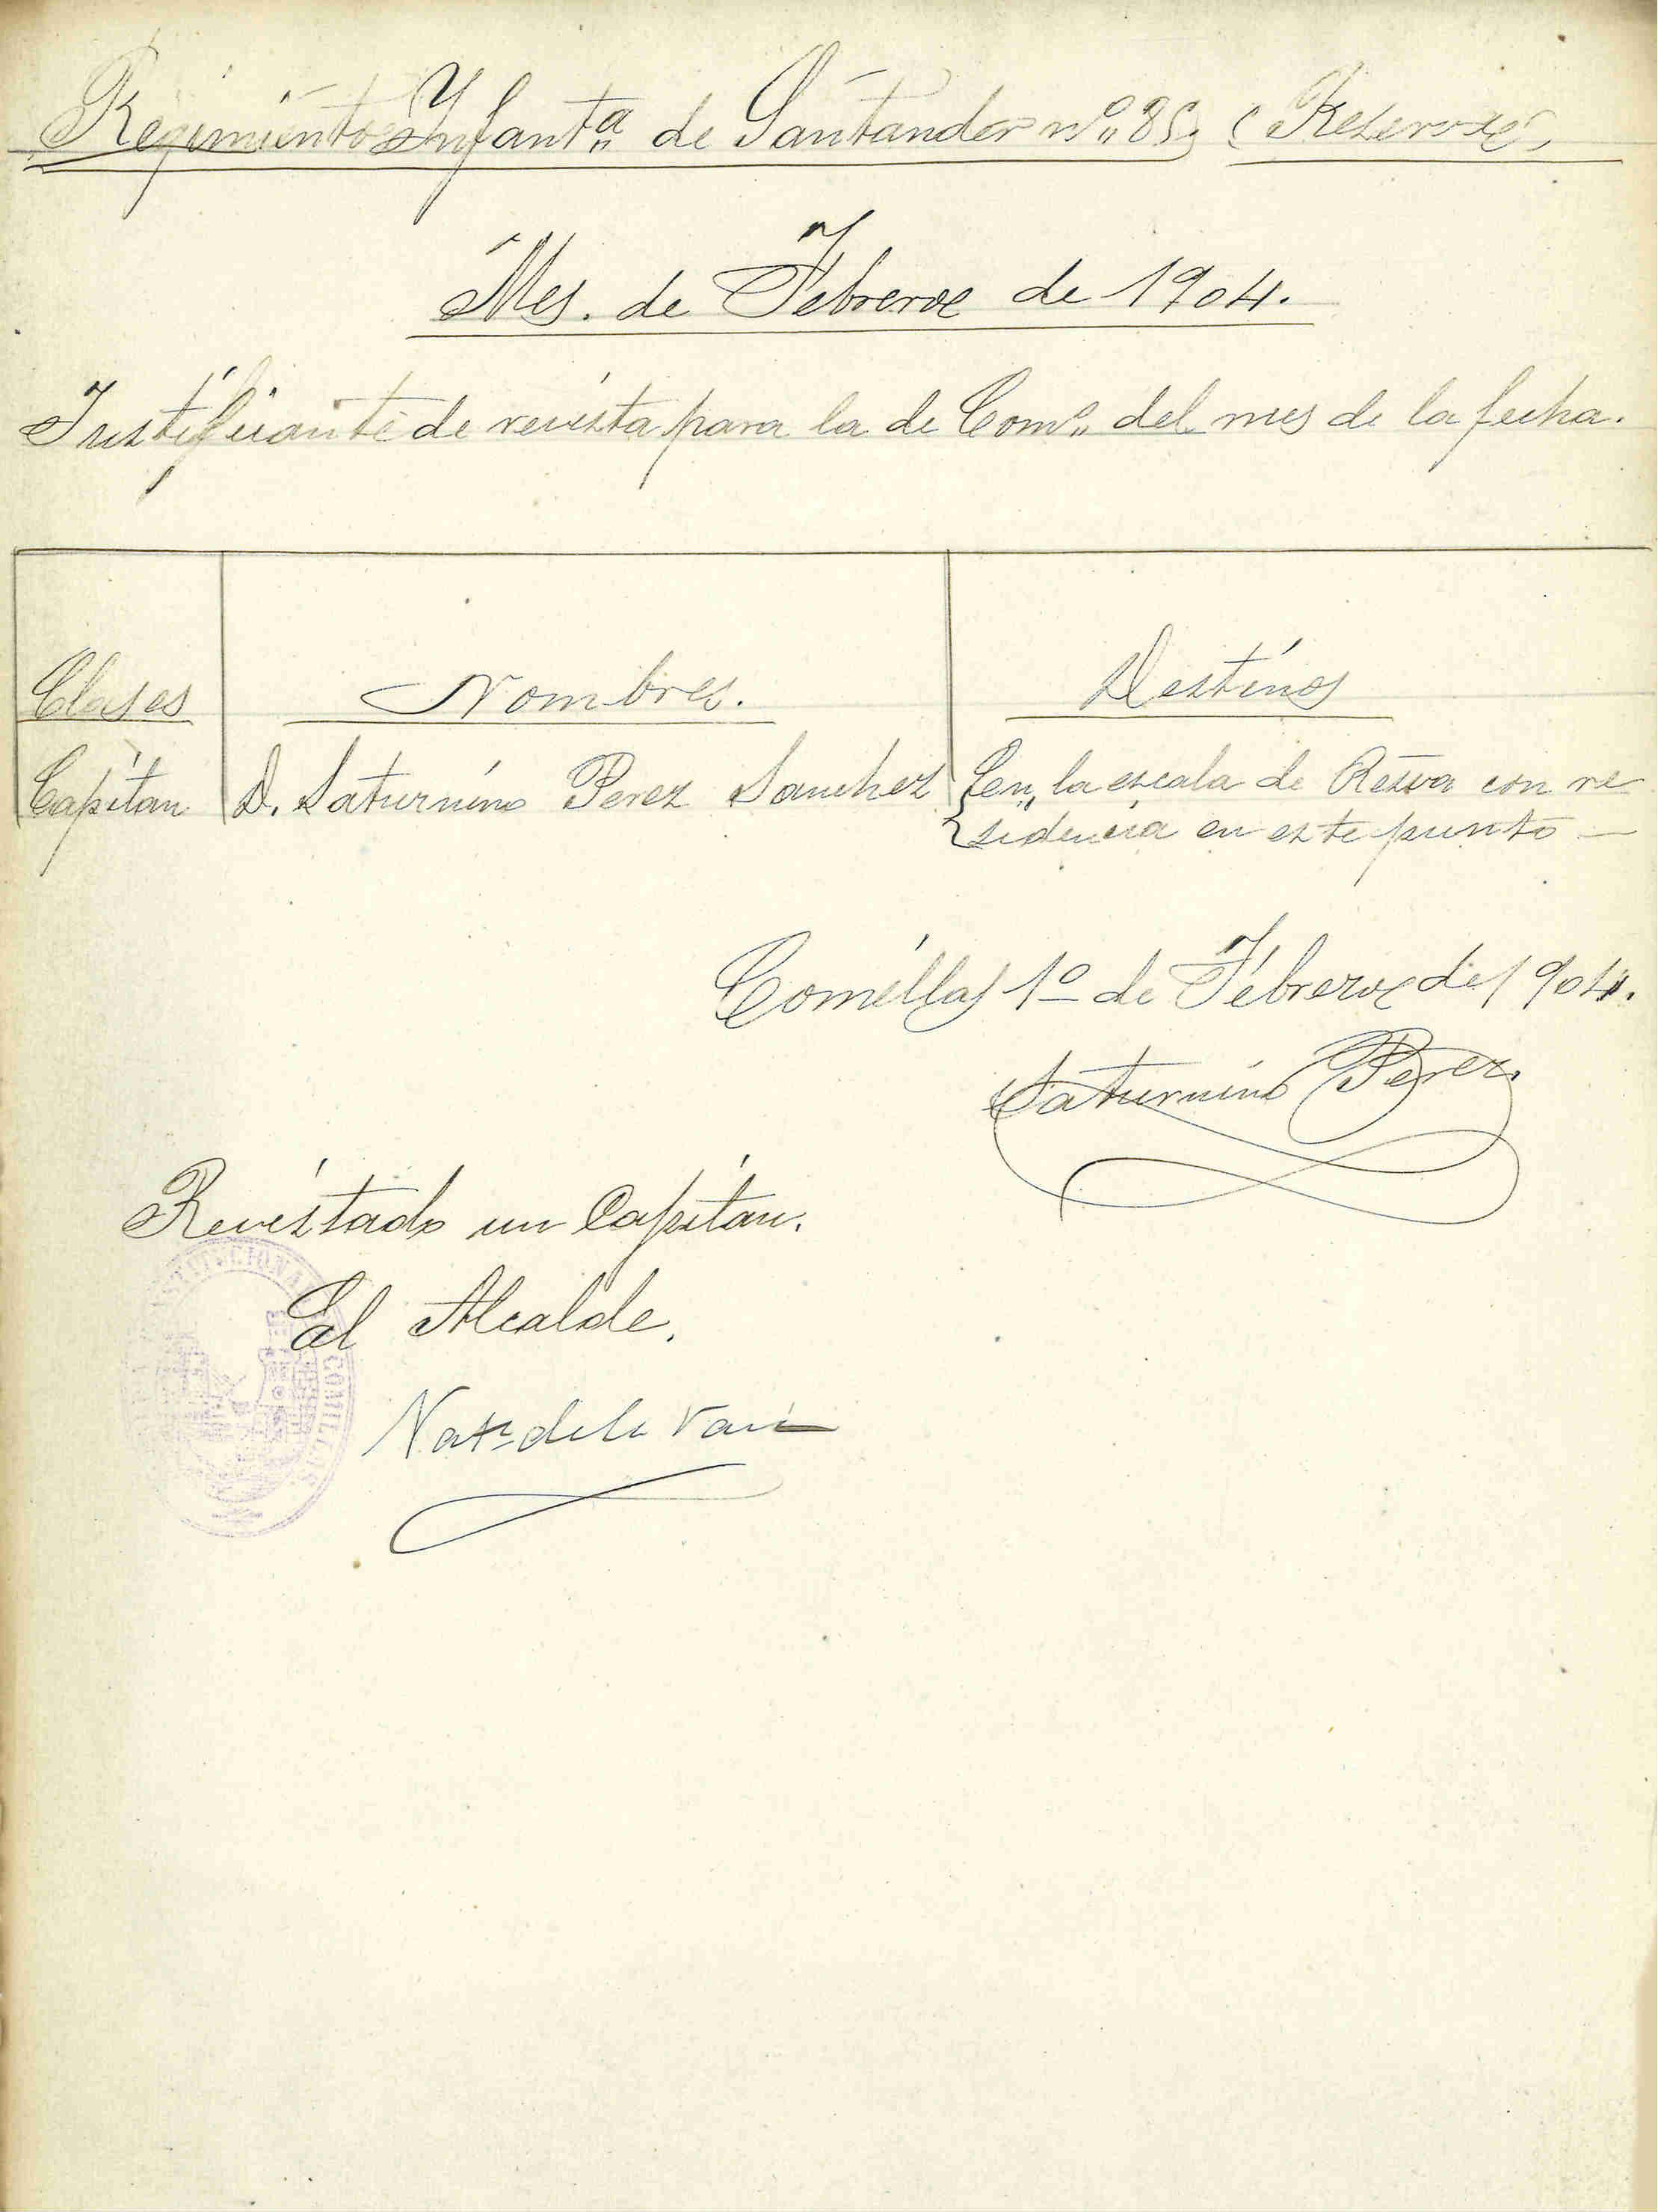 Regimiento Ynfantª de Santander nº 85, (Reserva)
Mes. de Febrero de 1904.
Justificante de revista para la de Comº del mes de la fecha.
Clases
Nombres.
Destinos
Capitan
D. Saturnino Perez Sanchez
en la escala de Resva con re
sidencia en este punto —
Comillas 1º de Febrero de 1904.
Saturnino Perez.
Revistado un Capitan.
El Alcalde.
COMILLAS